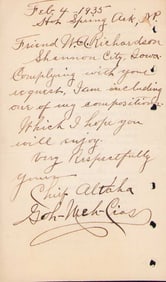 Feb. 4 - 1935
Hot Spring Ark,
Friend W.A. Richardson
Shannon City, Iowa
Complying with your
request, I am including
our of my compositions
Which I hope you
will enjoy.
Very Respectfully
yours
Chief Altaha
Goh-Uch-Cias